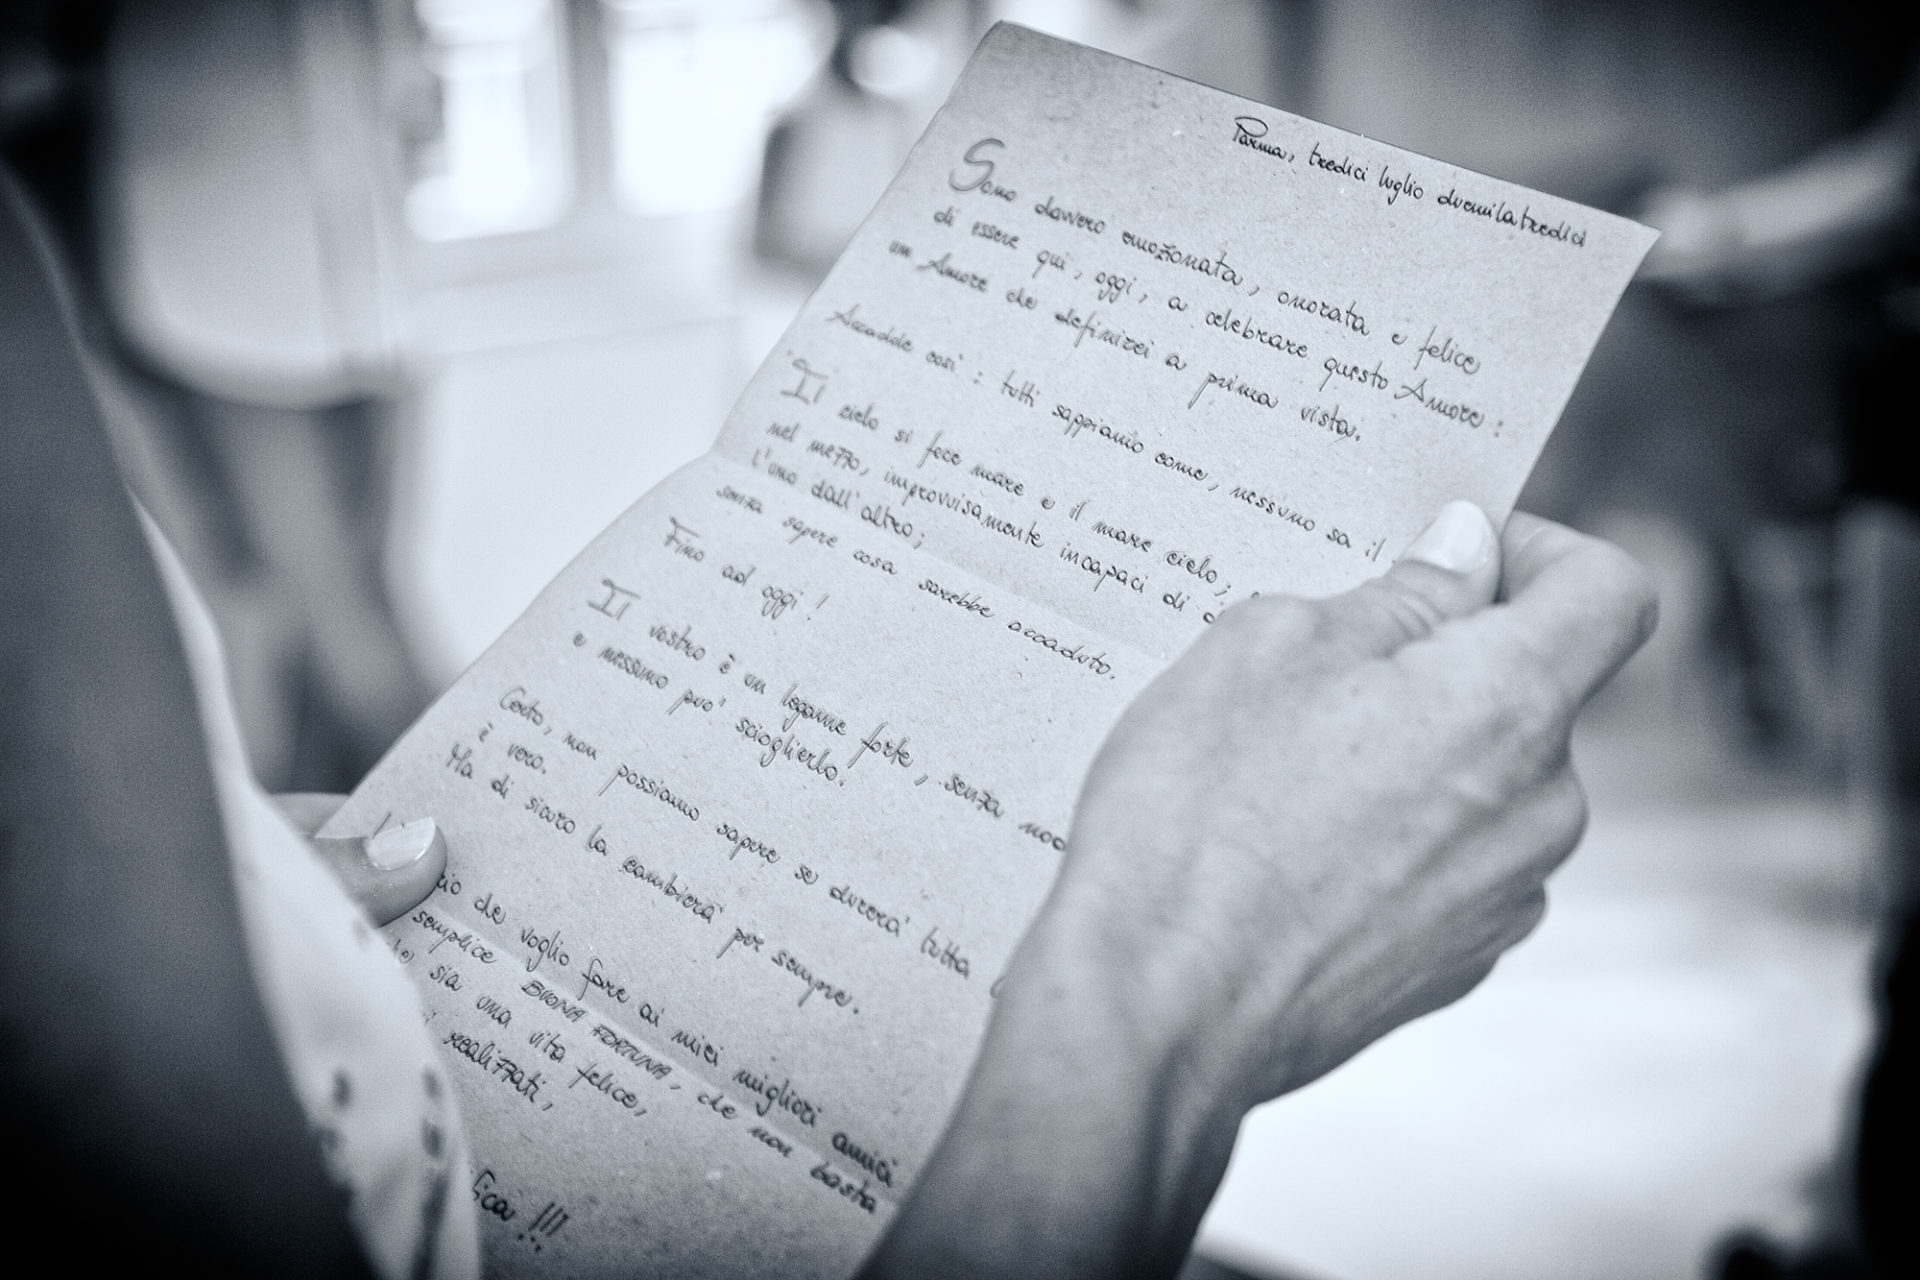 Parma, tredici luglio duemilatredici
Sono davvero emozionata, onorata e felice
di essere qui, oggi, a celebrare questo Amore:
un Amore che definirei a prima vista.
Accadde così: tutti sappiamo come, nessuno sa il
Il cielo si fece mare e il mare cielo;
nel mezzo, improvvisamente incapaci di
l'uno dall'altro;
senza sapere cosa sarebbe accaduto.
Fino ad oggi!
Il vostro è un legame forte, senza
e nessuno puo' scioglierlo.
Certo, non possiamo sapere se durerà tutta
è vero.
Ma di sicuro la cambierà per sempre.
che voglio fare ai miei migliori amici
semplice BUONA FORTUNA, che non basta
sia una vita felice,
realizzati,
!!!